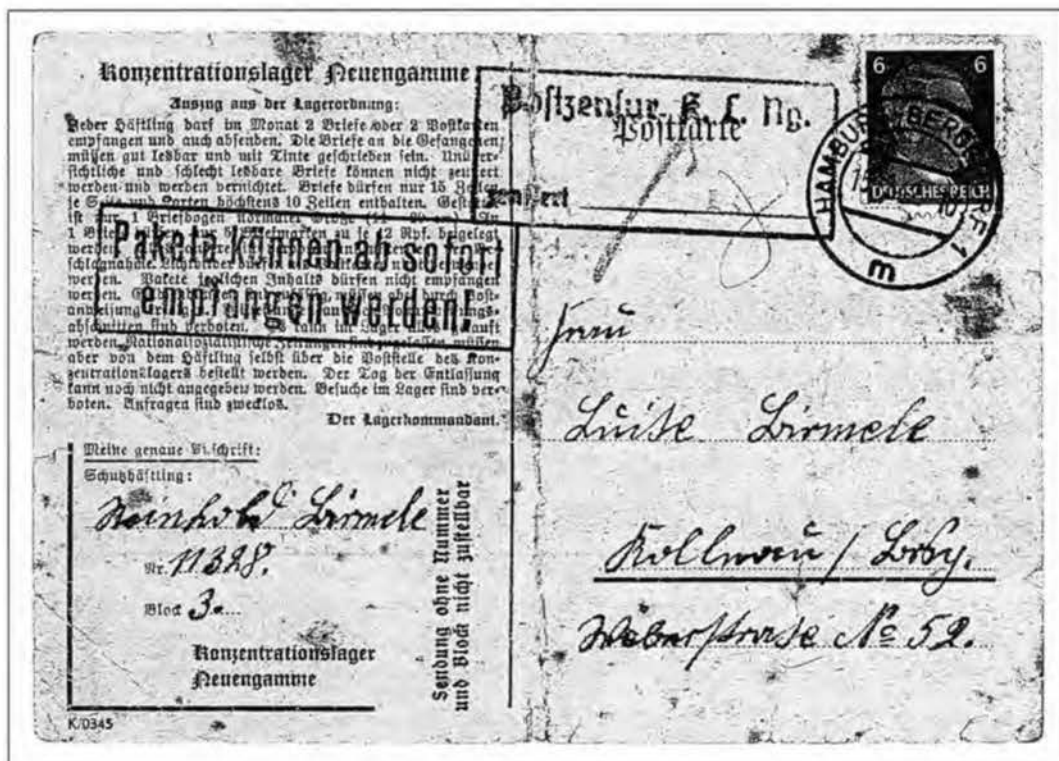 Konzentrationslager Neuengamme
Auszug aus der Lagerordnung:
Jeder Häftling darf im Monat 2 Briefe oder 2 Postkarten
empfangen und auch absenden. Die Briefe an die Gefangenen
müssen gut lesbar und mit Tinte geschrieben sein. Unüber-
sichtliche und schlecht lesbare Briefe können nicht zensiert
werden und werden vernichtet. Briefe dürfen nur 15 Zeilen
je Seite und Karten höchstens 10 Zeilen enthalten. Gestattet
ist nur 1 Briefbogen normaler Größe
1 Brief nur 5 Briefmarken zu je 12 Rpf. beigelegt
werden.
werden. Pakete jeglichen Inhalts dürfen nicht empfangen
werden. durch Post-
anweisung
abschnitten sind verboten. Es kann im Lager alles gekauft
werden. Nationalsozialistische Zeitungen sind zugelassen, müssen
aber von dem Häftling selbst über die Poststelle des Kon-
zentrationslagers bestellt werden. Der Tag der Entlassung
kann noch nicht angegeben werden. Besuche im Lager sind ver-
boten. Anfragen sind zwecklos.
Der Lagerkommandant.
Pakete können ab sofort
empfangen werden!
Meine genaue Anschrift:
Schutzhäftling:
Reinhold Birmele
Nr. 11328.
Block 3a
Konzentrationslager
Neuengamme
Sendung ohne Nummer
und Block nicht zustellbar
K/0345
Postzensur K. L. Ng.
Postkarte
zensiert
6 6
DEUTSCHES REICH
HAMBURG-BERGEDORF 1
m
Frau
Luise Birmele
Kollnau / Brsg.
Weberstraße No 52.